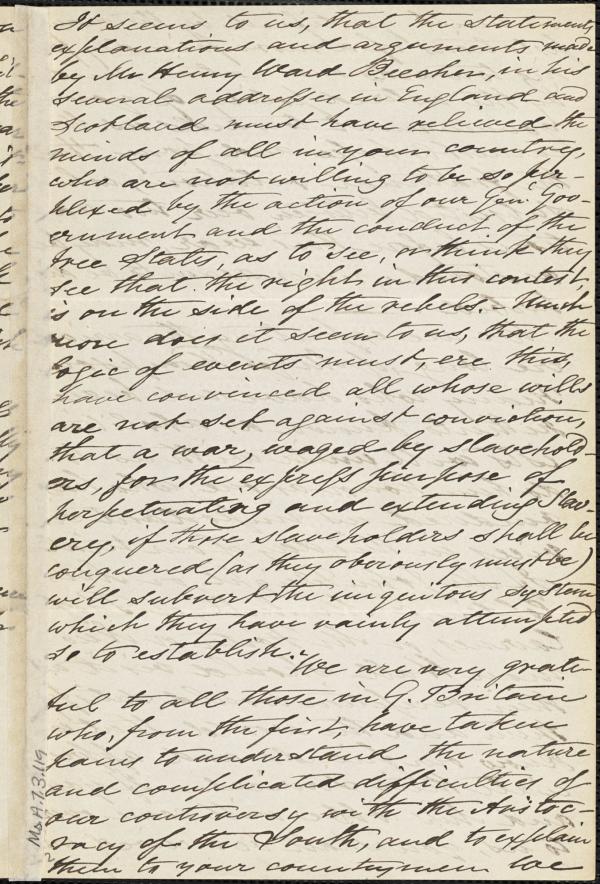 It seems to us, that the statements,
explanations and arguments made
by Mr Henry Ward Beecher, in his
several addresses in England and
Scotland must have relieved the
minds of all in your country,
who are not willing to be so per-
plexed by the action of our Gen'l Gov-
ernment and the conduct of the
free States, as to see, or think they
see that the right in this contest,
is on the side of the rebels. - Much
more does it seem to us, that the
logic of events must, ere this,
have convinced all whose wills
are not set against conviction,
that a war, waged by slavehold-
ers, for the express purpose of
perpetuating and extending Slav-
ery, if those slaveholders shall be
conquered (as they obviously must be)
will subvert the iniquitous system
which they have vainly attempted
so to establish.
We are very grate-
ful to all those in G. Britain
who, from the first, have taken
pains to understand the nature
and complicated difficulties of
our controversy with the Aristoc-
racy of the South, and to explain
them to your countrymen. We
Ms.A.7.3.119